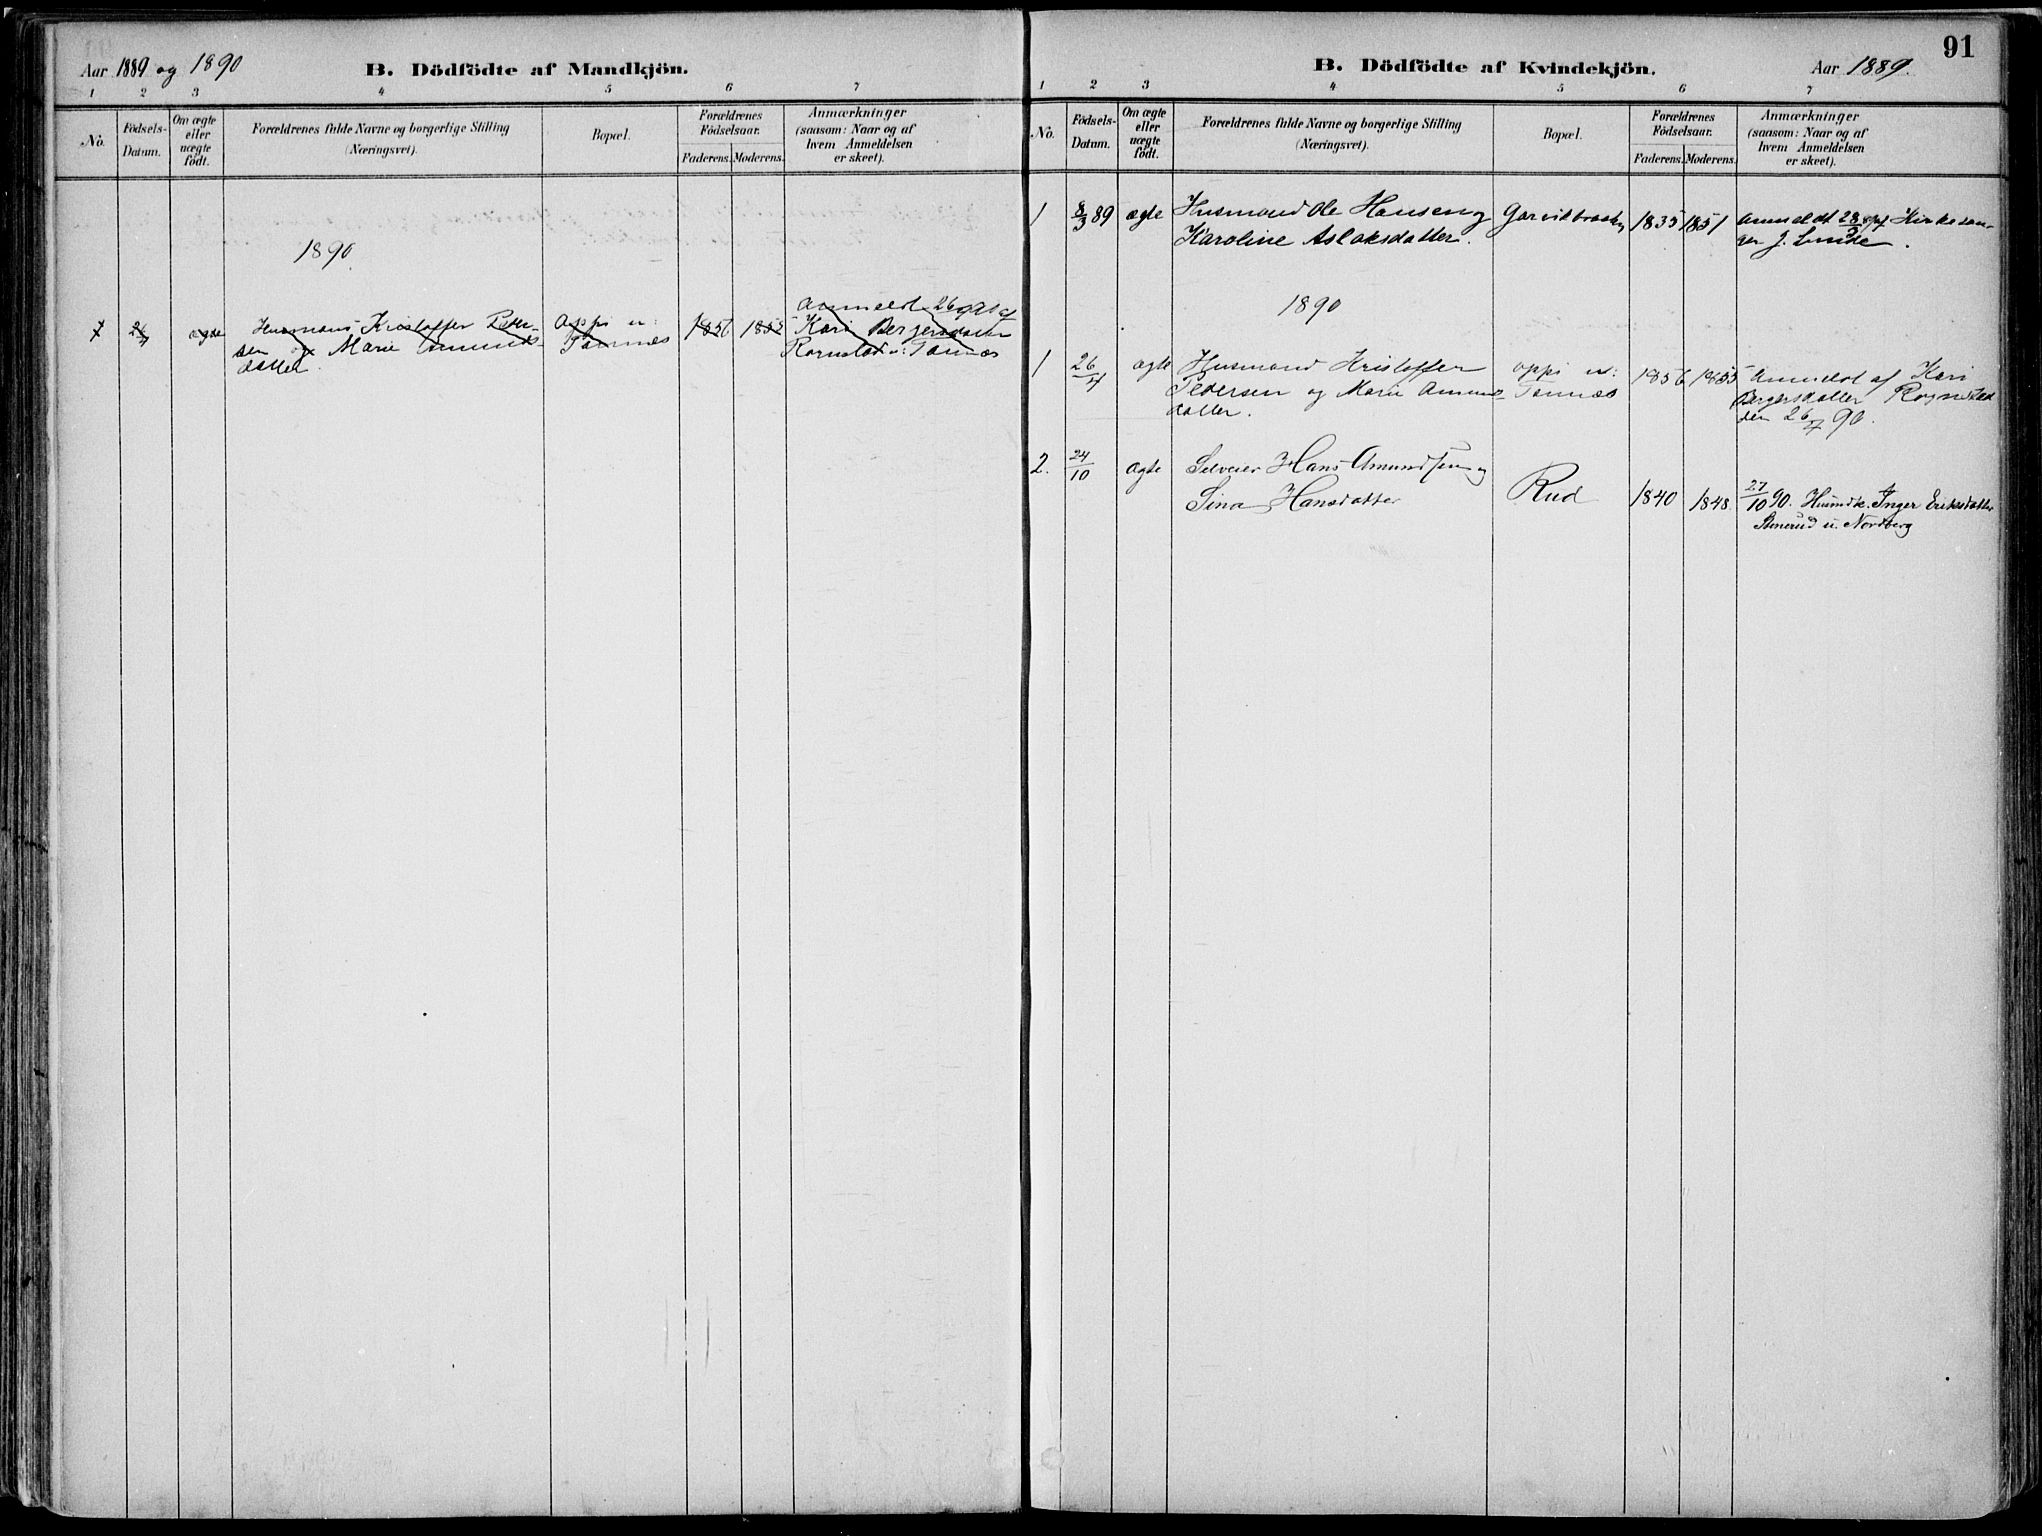 Aar 1889 og 1890
B. Dödfödte af Mandkjön.
1 2 3 4 5 6 7
No.
Födsels-
Datum.
Om ægte
eller
uægte
födt.
Forældrenes fulde Navne og borgerlige Stilling
(Næringsvei).
Bopæl.
Forældrenes
Födselsaar.
Faderens. Moderens.
Anmærkninger
(saasom: Naar og af
hvem Anmeldelsen
er skeet).
1890
1 26/7 ægte Husmand Kristoffer Peder-
sen og Marie Amunds-
datter.
Oppi u:
Tannæs
1856 1855
Anmeldt 26 af
Kari Bergersdatter
u: Tannæs
91
B. Dödfödte af Kvindekjön.
Aar 1889.
1 2 3 4 5 6 7
No.
Födsels-
Datum.
Om ægte
eller
uægte
födt.
Forældrenes fulde Navne og borgerlige Stilling
(Næringsvei).
Bopæl.
Forældrenes
Födselsaar.
Faderens. Moderens.
Anmærkninger
(saasom: Naar og af
hvem Anmeldelsen
er skeet).
1 8/3 89 ægte Husmand Ole Hansen og
Karoline Aslaksdatter.
1835 1851
anmeldt 28/3 af Kirkesan-
ger J. Lunde.
1890
1 26/7 ægte Husmand Kristoffer
Pedersen og Marie Amunds
datter.
oppi u:
Tannæs
1856 1855
Anmeldt af Kari
Bergersdatter Rognstad
den 26/7 90.
2. 24/10 ægte Selveier Hans Amundsen og
Sina Hansdatter
Rud 1840 1848.
27/10 90. Inger Eriksdatter
u. Nordberg